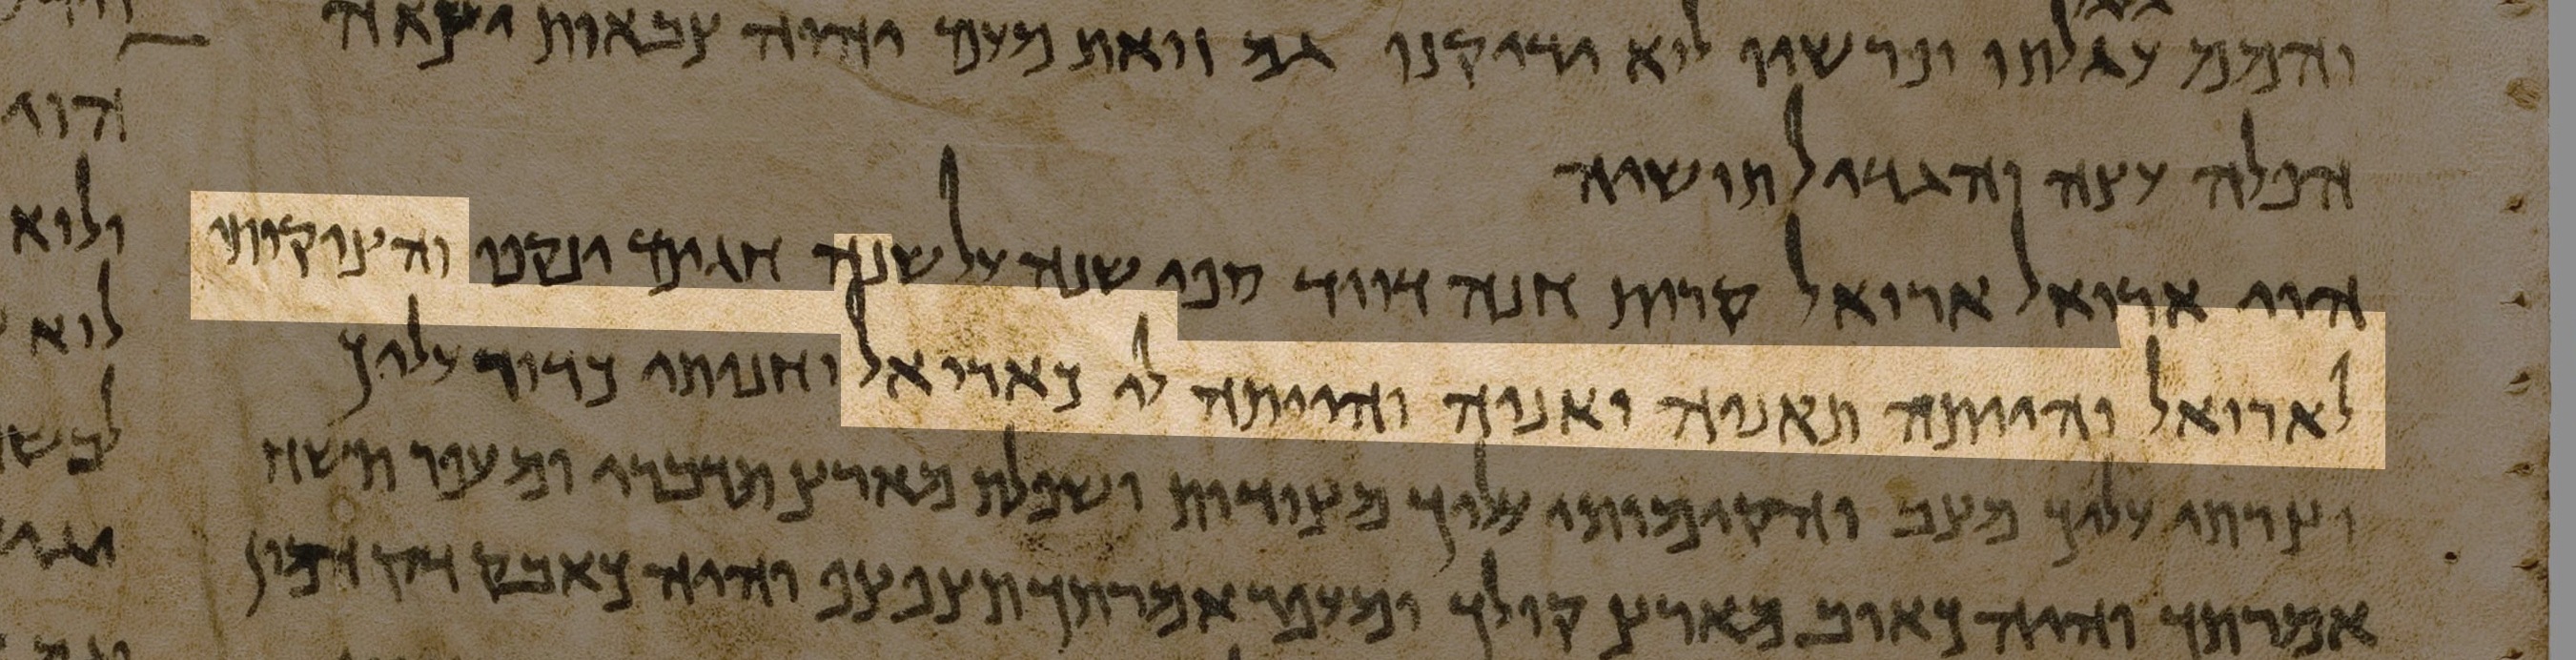 והמם עגלתו ופרשיו לוא ידוקנו גם זואת מעם יהוה צבאות יצאה
הפלה עצה והגדיל תושיה
הוי ארואל ארואל קרית חנה דויד ספי שנה על שנה חגים ינקפו והציקותי
לארואל והייתה תאניה ואניה והייתה לי כארואל וחניתי כדור עליך
וצרתי עליך מצב והקימותי עליך מצודות ושפלת מארץ תדברי ומעפר תשח
אמרתך והיה כאוב מארץ קולך ומעפר אמרתך תצפצף והיה כאבק המון
הוי
ולוא
לוא